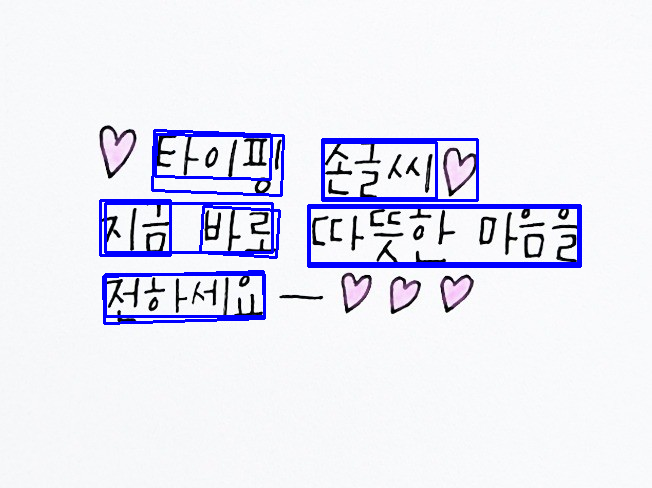 ♡ 타이핑 손글씨 ♡
지금 바로 따뜻한 마음을
전하세요 — ♡ ♡ ♡